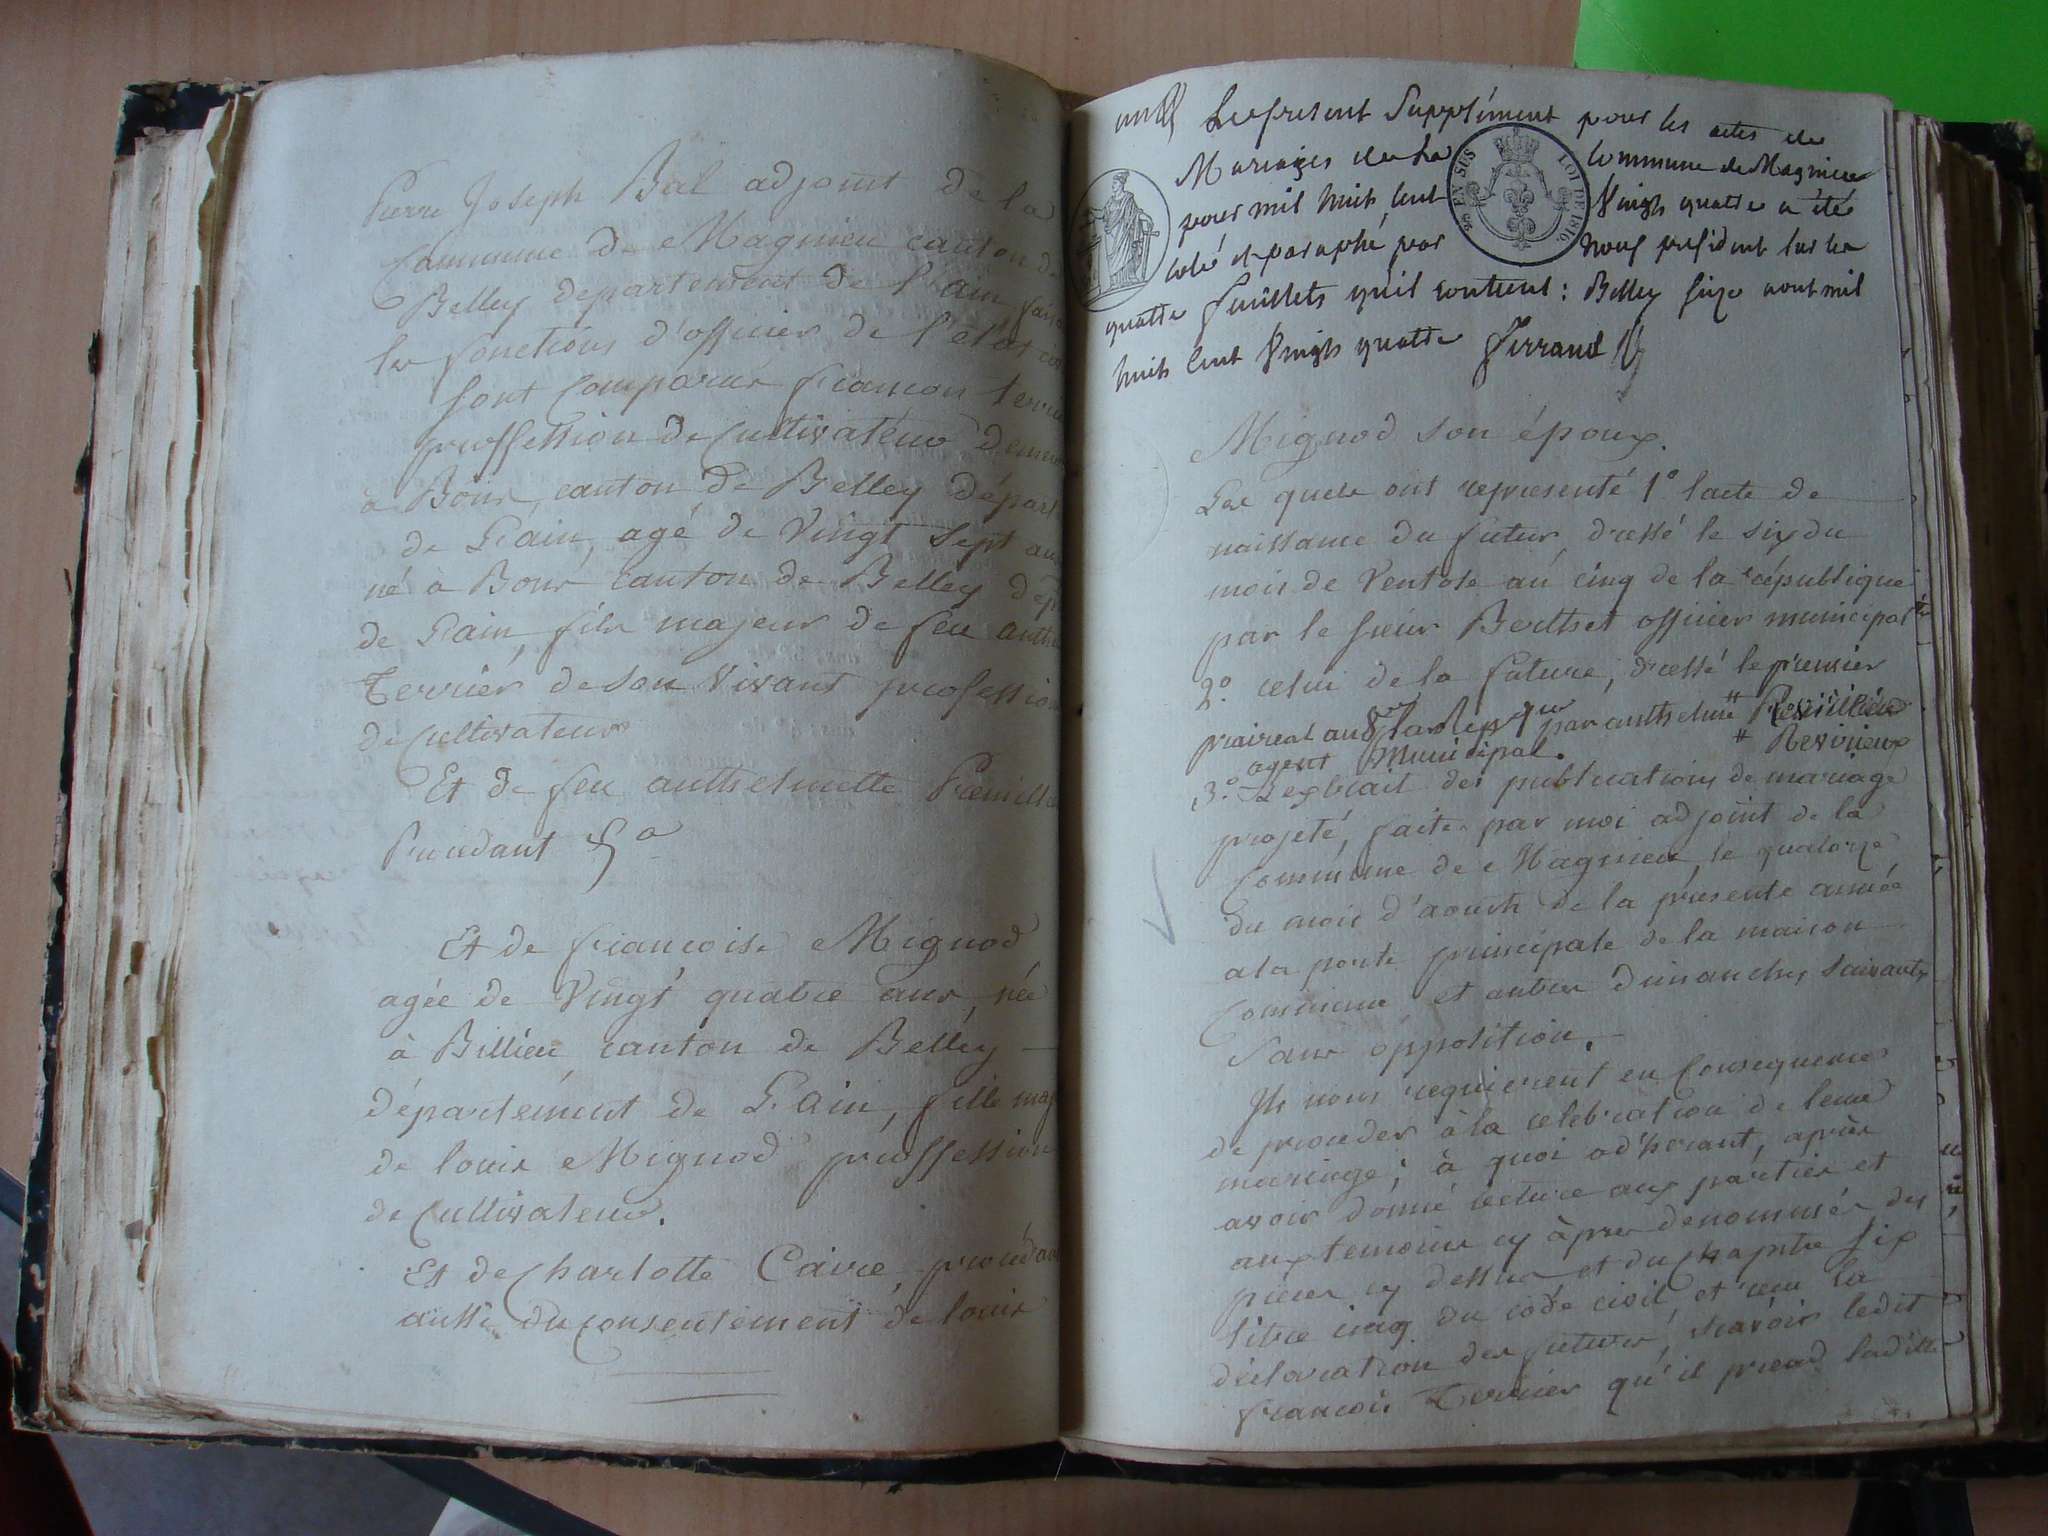 Pierre Joseph Bal adjoint de la
Commune de Magnieu canton de
Belley departement de l'ain fais
les fonctions d'officier de l'état civ
Sont Comparus francois terri
proffession de Cultivateur demeu
à Bons, canton de Belley dépar
de L'ain, agé de Vingt Sept an
né à Bons canton de Belley dép
de L'ain, fils majeur de feu anth
Terrier de son Vivant professio
de Cultivateur
Et de feu anthelmette
Procedant
Et de francoise Mignod
agée de Vingt quatre ans, née
à Billieu canton de Belley
département de L'ain, fille maj
de louis Mignod proffession
de Cultivateur.
Et de Charlotte Caire, procédan
aussi du consentement de louis
Le present Supplément pour les actes de
Mariages de la Commune de Magnieu
pour mil huit Cent Vingt quatre a été
coté et paraphé par Nous president sur les
quatre feuillets qu'il contient: Belley Sixe aout mil
huit Cent Vingt quatre Ferrand
2es EN SUS LOI DE 1816.
Mignod son époux.
Les quels ont representé 1° lacte de
naissance du futur, dressé le six du
mois de Ventose an cinq de la république
par le sieur Berthet officier municipal
2° celui de la future, dressé le premier
praireal an 8 par anthelme
agent Municipal. # Revirieux
3° L'extrait des publications de mariage
projeté, faite par moi adjoint de la
Commune de Magnieu, le quatorze
du mois d'aoust de la présente année
a la porte principale de la maison
Commune et autres dimanches suivants
Sans opposition.
Ils nous requierent en Consequence
de proceder à la celebration de leur
mariage; à quoi adhérant, après
avoir donné lecture aux parties et
aux temoins cy àpres denommés des
pieces cy dessus et du chapitre six
titre cinq du code civil, et recu la
déclaration des futurs, scavoir ledit
francois Terrier qu'il prend ladite